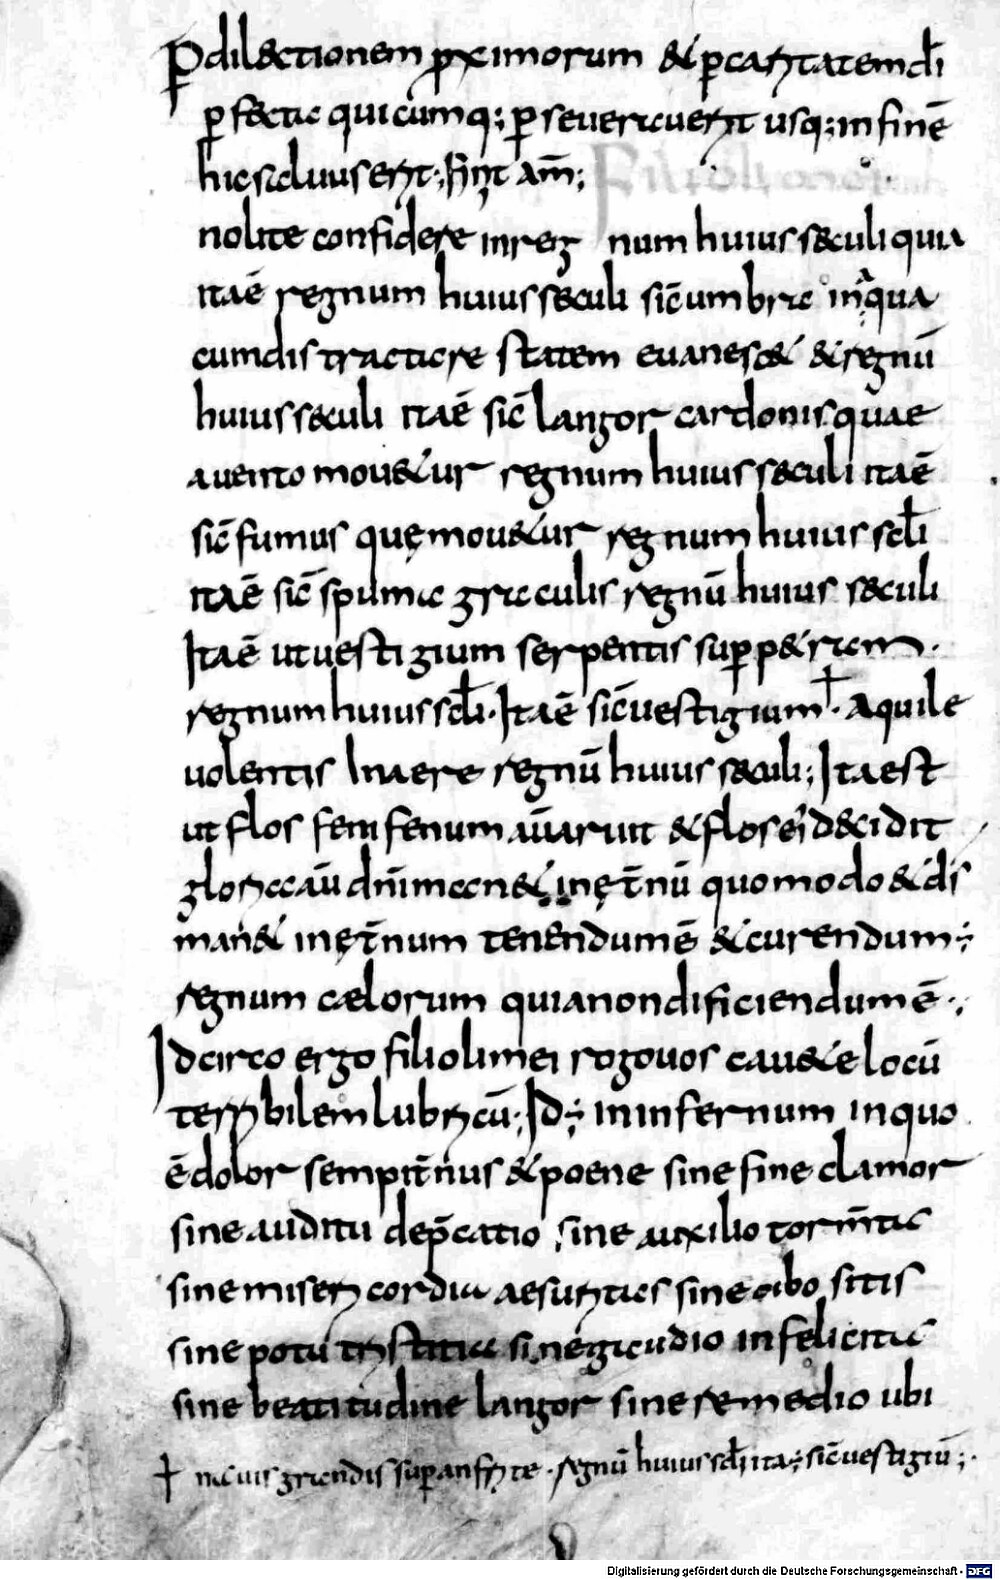 P dilectionem proximorum & p caritatem di
p fecta quicumq; p seuerauerit usq; in finē
hic saluus erit; fiat am̄;
nolite confidere in reg num huius seculi quia
ita ē regnum huius seculi sic umbra in qua
cum distractare statem euanesc& & regnū
huius seculi ita ē sic langor cardonis quae
a uento mou&ur regnum huius seculi ita ē
sic fumus quę mou&ur regnum huius scli
ita ē sic spuma graculis regnū huius seculi
Ita ē ut uestigium serpentis sup p&ram.
regnum huius scli. Ita ē sic uestigium †. Aquile
uolentis in aere regnū huius seculi; Ita est
ut flos feni fenum aūaruit & flos ei decidit
gloria aū dnī man& in ęt̄nū quomodo & dis
man& in ęt̄num tenendum ē & curendum;
regnum caelorum quia non dificiendum ē.;
Idcirco ergo filioli mei rogo uos cau&e locū
terribilem lubricū; Id÷ in infernum in quo
ē dolor sempit̄nus & poene sine fine clamor
sine auditu dep̄catio sine auxilio torm̄ta
sine misericordia aesurities sine cibo sitis
sine potu tristitia sine gaudio infelicitas
sine beatitudine langor sine remedio ubi
† nauis grandis sup anffrite. regnū huius scli ita÷ sic uestigiū;.
Digitalisierung gefördert durch die Deutsche Forschungsgemeinschaft - DFG